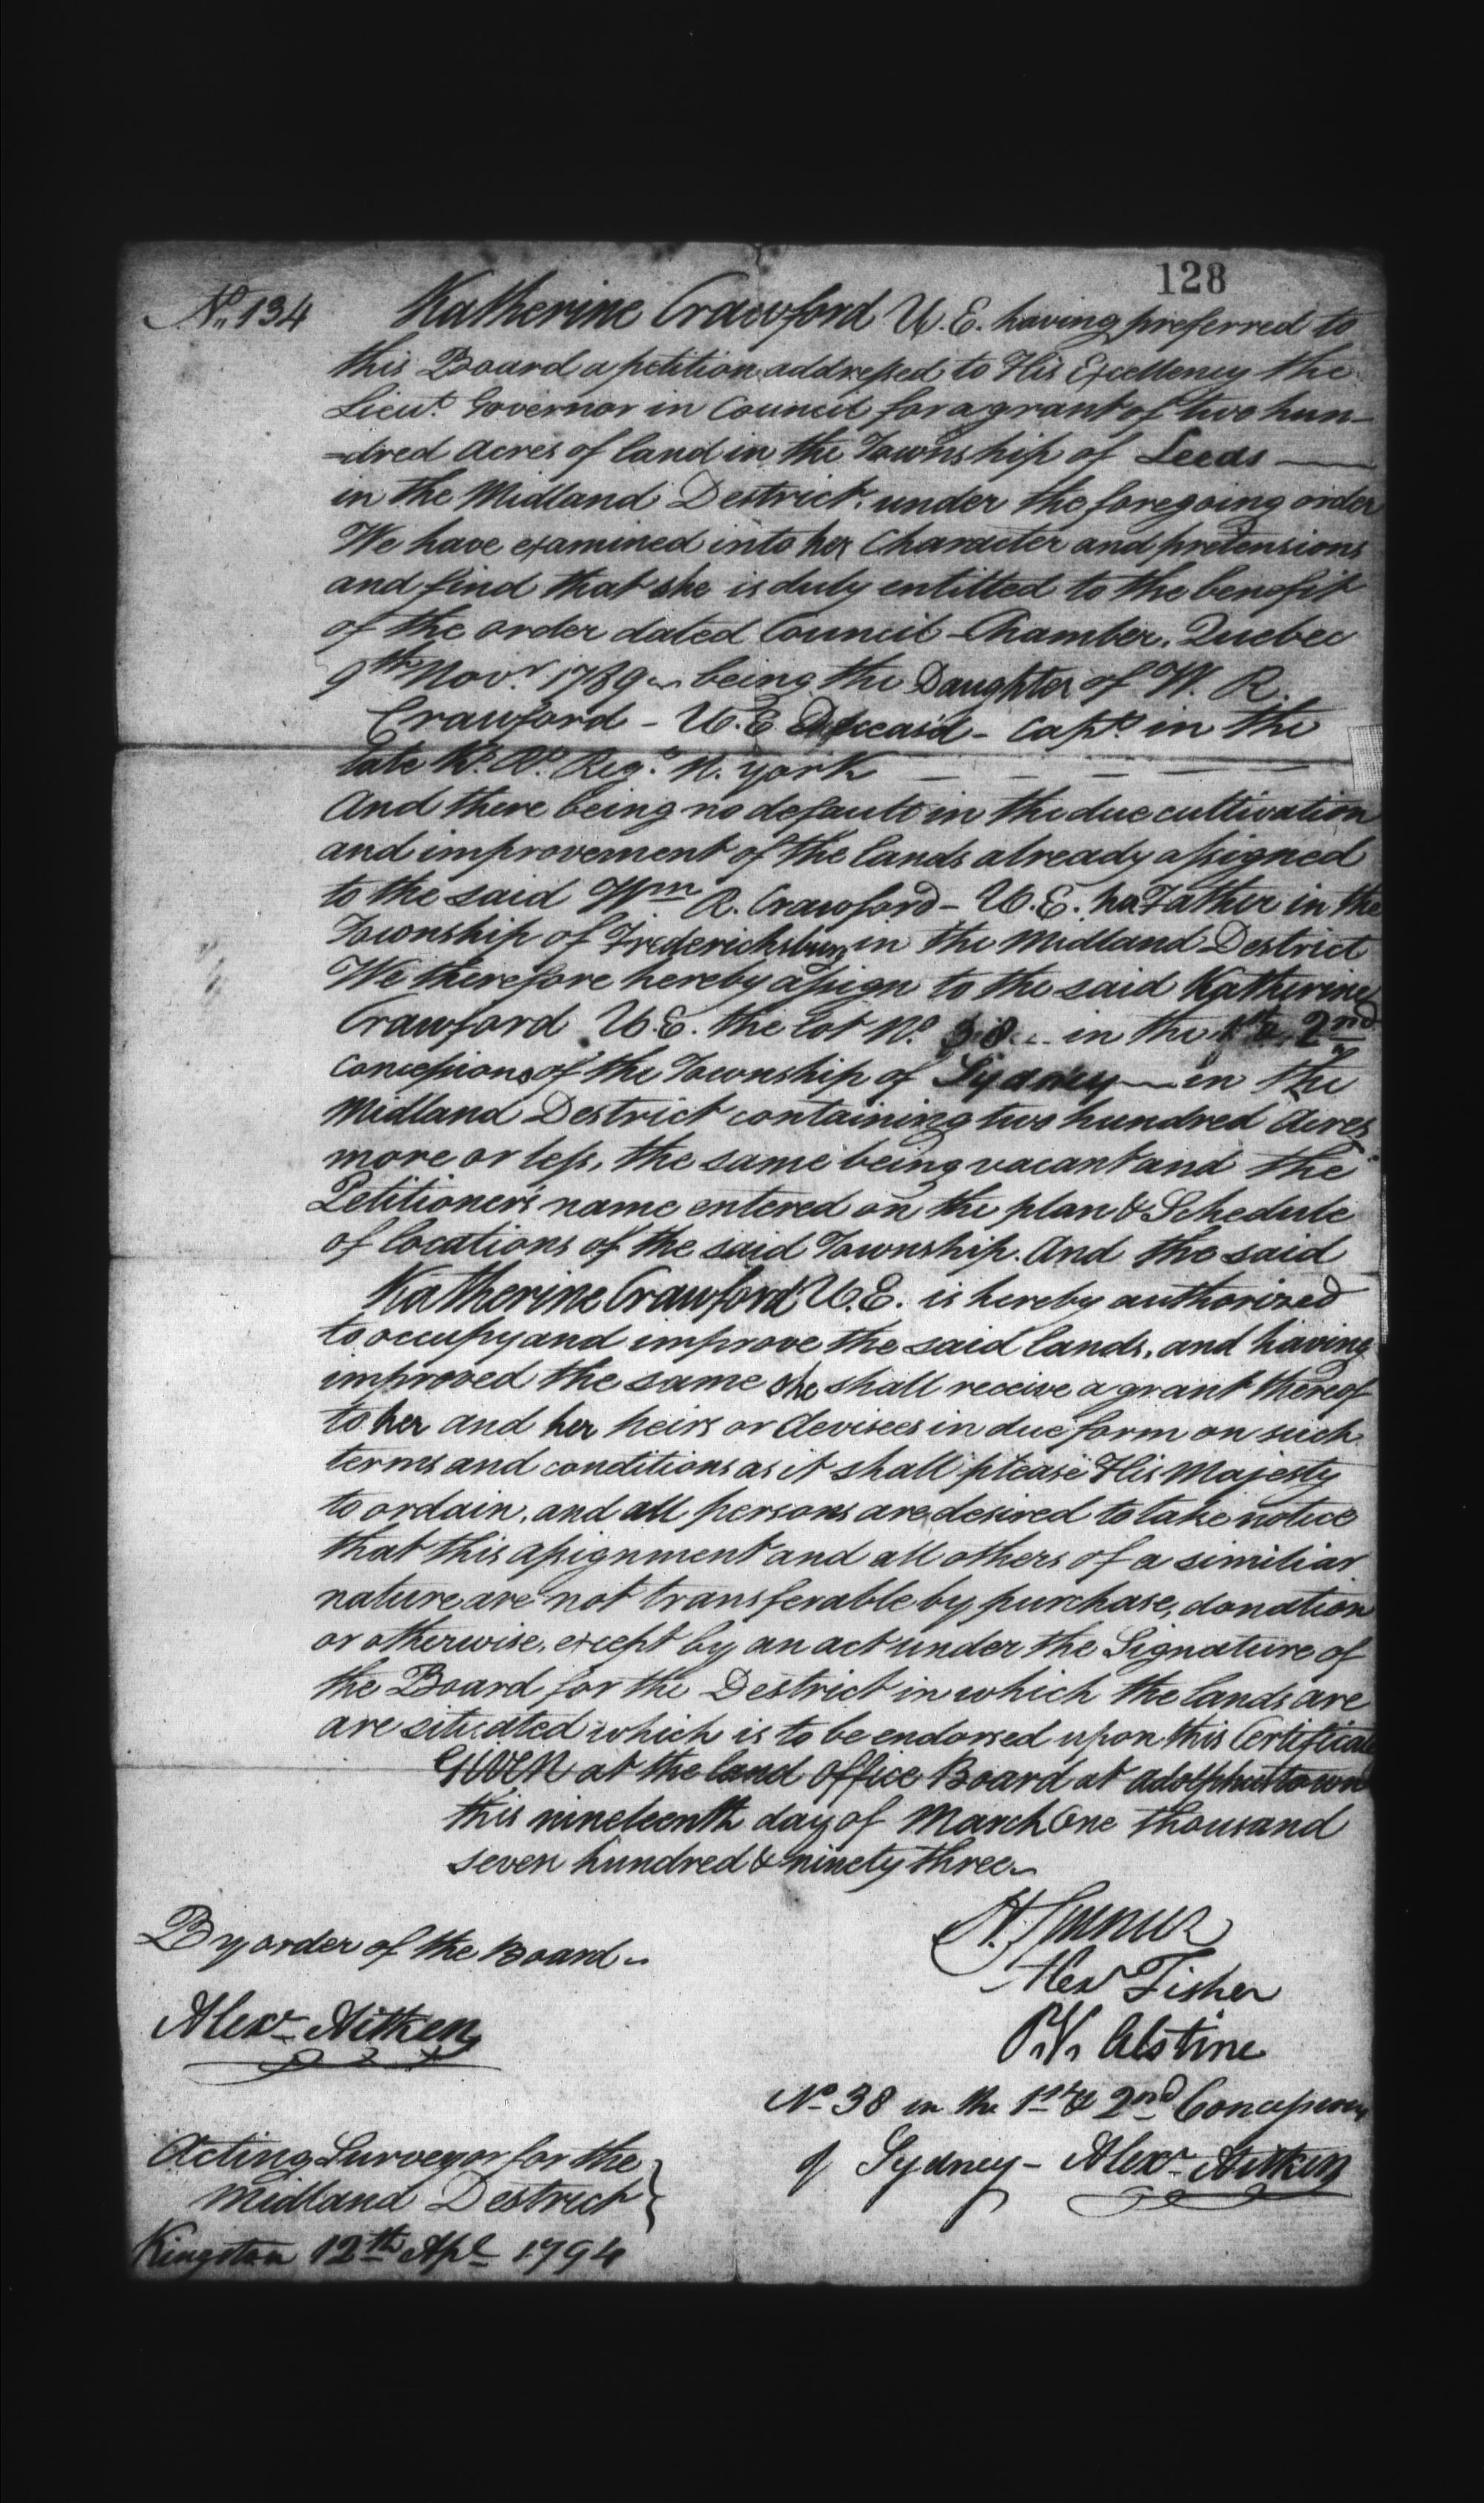 128
No. 134 Katherine Crawford U.E. having preferred to
this Board a petition addressed to His Excellency the
Lieut. Governor in Council for a grant of two hun-
-dred acres of land in the Township of Leeds —
in the Midland District. under the foregoing order
We have examined into her Character and pretensions
and find that she is duly entitled to the benefit
of the order dated Council-Chamber. Quebec
9th Novr. 1789 - being the Daughter of W. R.
Crawford - U.E. Deceas'd - Capt. in the
late K. R. Reg. N. York — — — — —
And there being no default in the due cultivation
and improvement of the lands already assigned
to the said Wm R. Crawford - U.E. her Father in the
Township of Fredericksburg in the Midland District
We therefore hereby assign to the said Katherine
Crawford U.E. the lot No. 38 — in the 1st & 2nd
Concessions of the Township of Sydney — in the
Midland District containing two hundred Acres
more or less, the same being vacant and the
Petitioner's name entered on the plan & Schedule
of locations of the said Township. And the said
Katherine Crawford U.E. is hereby authorized
to occupy and improve the said lands, and having
improved the same she shall receive a grant thereof
to her and her heirs or devisees in due form on such
terms and conditions as it shall please His Majesty
to ordain, and all persons are desired to take notice
that this assignment and all others of a similiar
nature are not transferable by purchase, donation
or otherwise, except by an act under the Signature of
the Board for the District in which the lands are
are situated which is to be endorsed upon this Certificate
GIVEN at the land office Board at adolphustown
this nineteenth day of March One thousand
seven hundred & ninety three
By order of the Board
Alexr Aitken
Acting Surveyor for the
Midland District
Kingston 12th Apl 1794
H. Spencer
Alexr Fisher
P. V. Alstine
No 38 in the 1st & 2nd Concession
of Sydney - Alexr Aitken